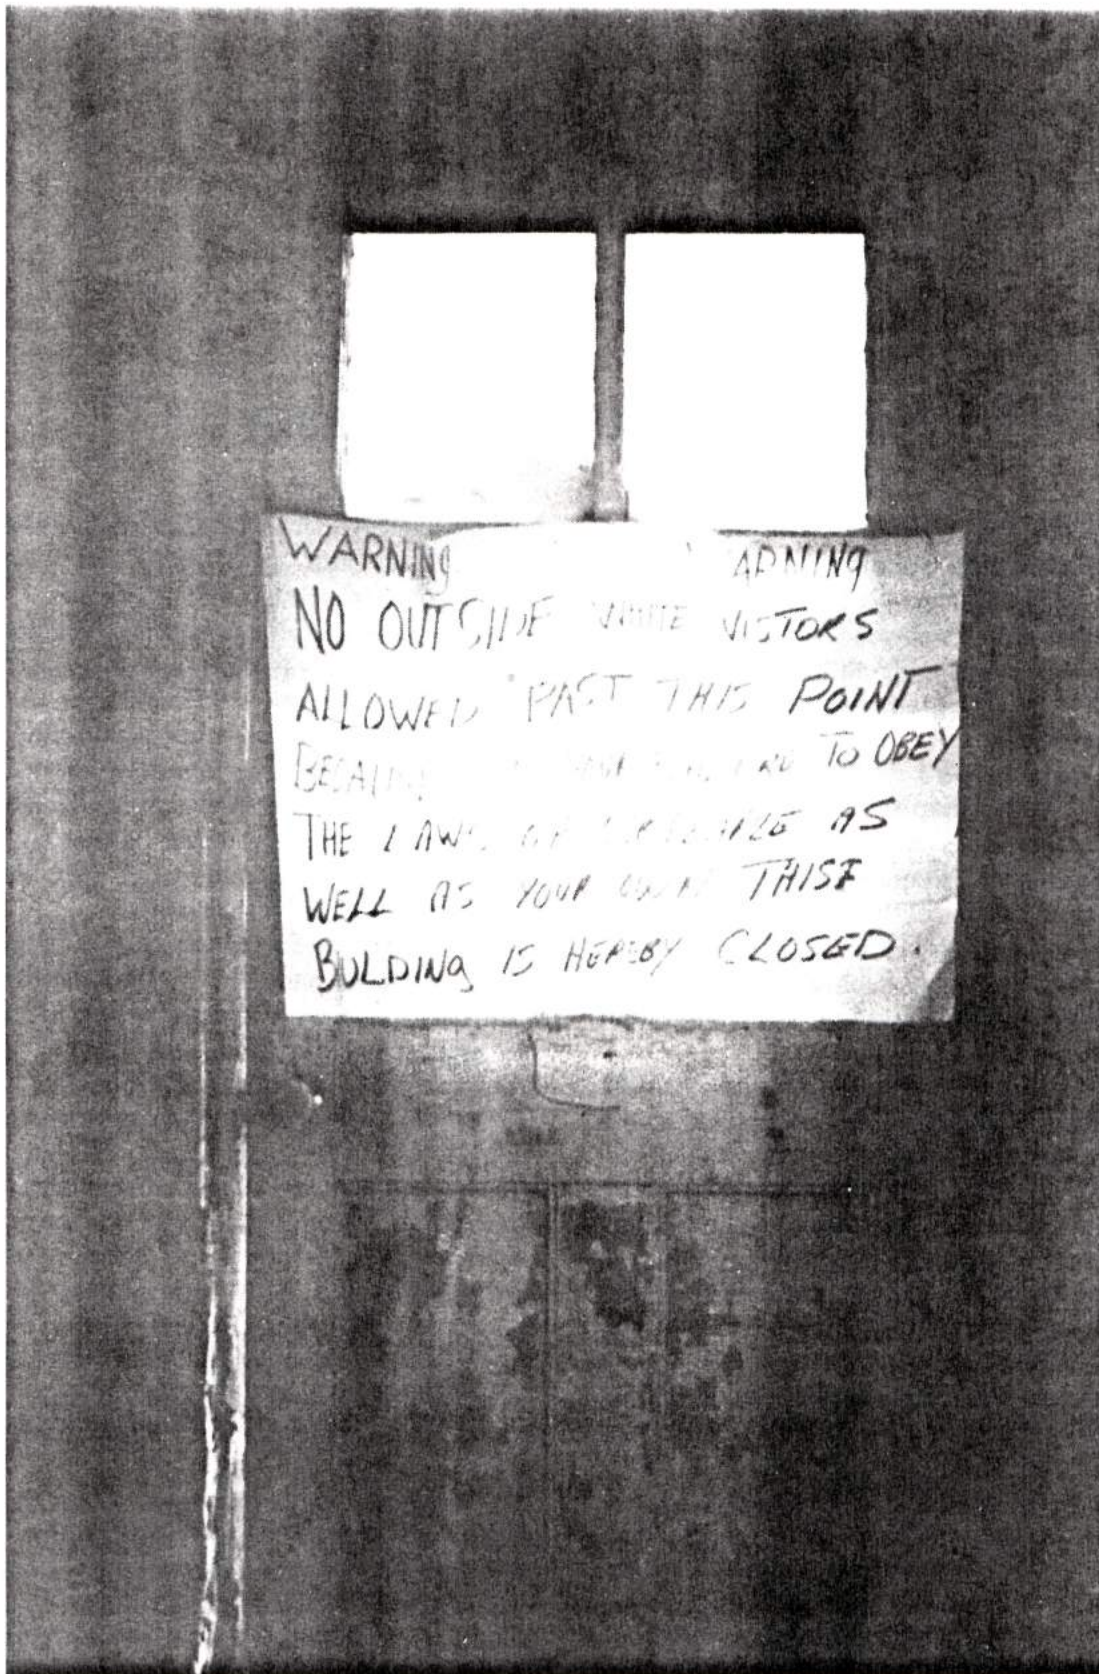 WARNING ARNING
NO OUTSIDE WHITE VISTORS
ALLOWED PAST THIS POINT
TO OBEY
THE LAWS AS
WELL AS YOUR OWN THISE
BULDING IS HEREBY CLOSED.